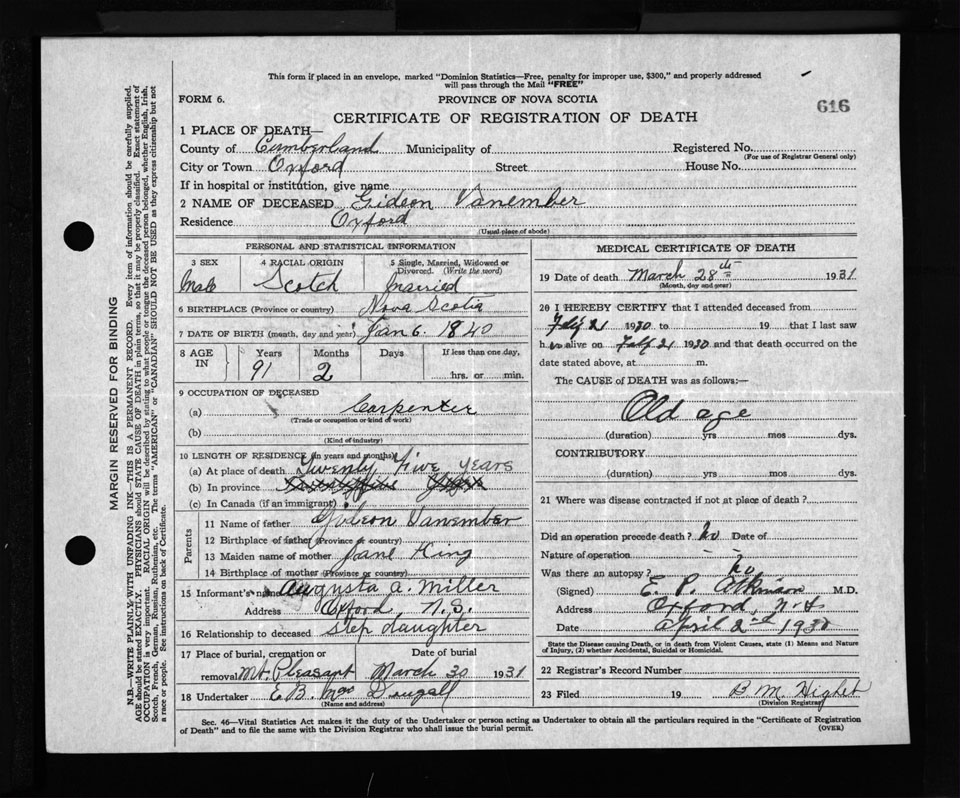 This form if placed in an envelope, marked "Dominion Statistics—Free, penalty for improper use, $300," and properly addressed
will pass through the Mail "FREE"
FORM 6.
PROVINCE OF NOVA SCOTIA
616
CERTIFICATE OF REGISTRATION OF DEATH
1 PLACE OF DEATH—
County of Cumberland Municipality of Registered No.
(For use of Registrar General only)
City or Town Oxford Street House No.
If in hospital or institution, give name
2 NAME OF DECEASED Gideon Vanember
Residence Oxford
(Usual place of abode)
PERSONAL AND STATISTICAL INFORMATION
3 SEX 4 RACIAL ORIGIN 5 Single, Married, Widowed or
Divorced. (Write the word)
Male Scotch Married
6 BIRTHPLACE (Province or country) Nova Scotia
7 DATE OF BIRTH (month, day and year) Jan 6. 1840
8 AGE IN Years Months Days If less than one day,
91 2 hrs. or min.
9 OCCUPATION OF DECEASED
(a) Carpenter
(Trade or occupation or kind of work)
(b)
(Kind of industry)
10 LENGTH OF RESIDENCE (in years and months)
(a) At place of death Twenty Five years
(b) In province
(c) In Canada (if an immigrant)
Parents
11 Name of father Gideon Vanember
12 Birthplace of father (Province or country)
13 Maiden name of mother Jane King
14 Birthplace of mother (Province or country)
15 Informant's name Augusta A. Miller
Address Oxford, N.S.
16 Relationship to deceased step daughter
17 Place of burial, cremation or Date of burial
removal Mt. Pleasant March 30 1931
18 Undertaker E B. Dougall
(Name and address)
MEDICAL CERTIFICATE OF DEATH
19 Date of death March 28th 1931
(Month, day and year)
20 I HEREBY CERTIFY that I attended deceased from
21 1930 to 19 that I last saw
h alive on 21 1930 and that death occurred on the
date stated above, at m.
The CAUSE of DEATH was as follows:—
Old age
(duration) yrs mos dys.
CONTRIBUTORY
(duration) yrs mos dys.
21 Where was disease contracted if not at place of death?
Did an operation precede death? No Date of
Nature of operation – –
Was there an autopsy? No
(Signed) E. P. Atkinson M.D.
Address Oxford, N.S.
Date April 2nd 1930
State the Disease causing Death, or in death from Violent Causes, state (1) Means and Nature
of Injury, (2) whether Accidental, Suicidal or Homicidal.
22 Registrar's Record Number
23 Filed 19 B M. Hight
(Division Registrar)
Sec. 46—Vital Statistics Act makes it the duty of the Undertaker or person acting as Undertaker to obtain all the particulars required in the "Certificate of Registration
of Death" and to file the same with the Division Registrar who shall issue the burial permit.
(OVER)
MARGIN RESERVED FOR BINDING
N.B.—WRITE PLAINLY WITH UNFADING INK—THIS IS A PERMANENT RECORD. Every item of information should be carefully supplied.
AGE should be stated EXACTLY. PHYSICIANS should STATE CAUSE OF DEATH in plain terms, so that it may be properly classified. Exact statement of
OCCUPATION is very important. RACIAL ORIGIN will be described by stating to what people or tongue the deceased person belonged, whether English, Irish,
Scotch, French, German, Russian, Ruthenian, etc. The terms "AMERICAN" or "CANADIAN" SHOULD NOT BE USED as they express citizenship but not
a race or people. See instructions on back of Certificate.